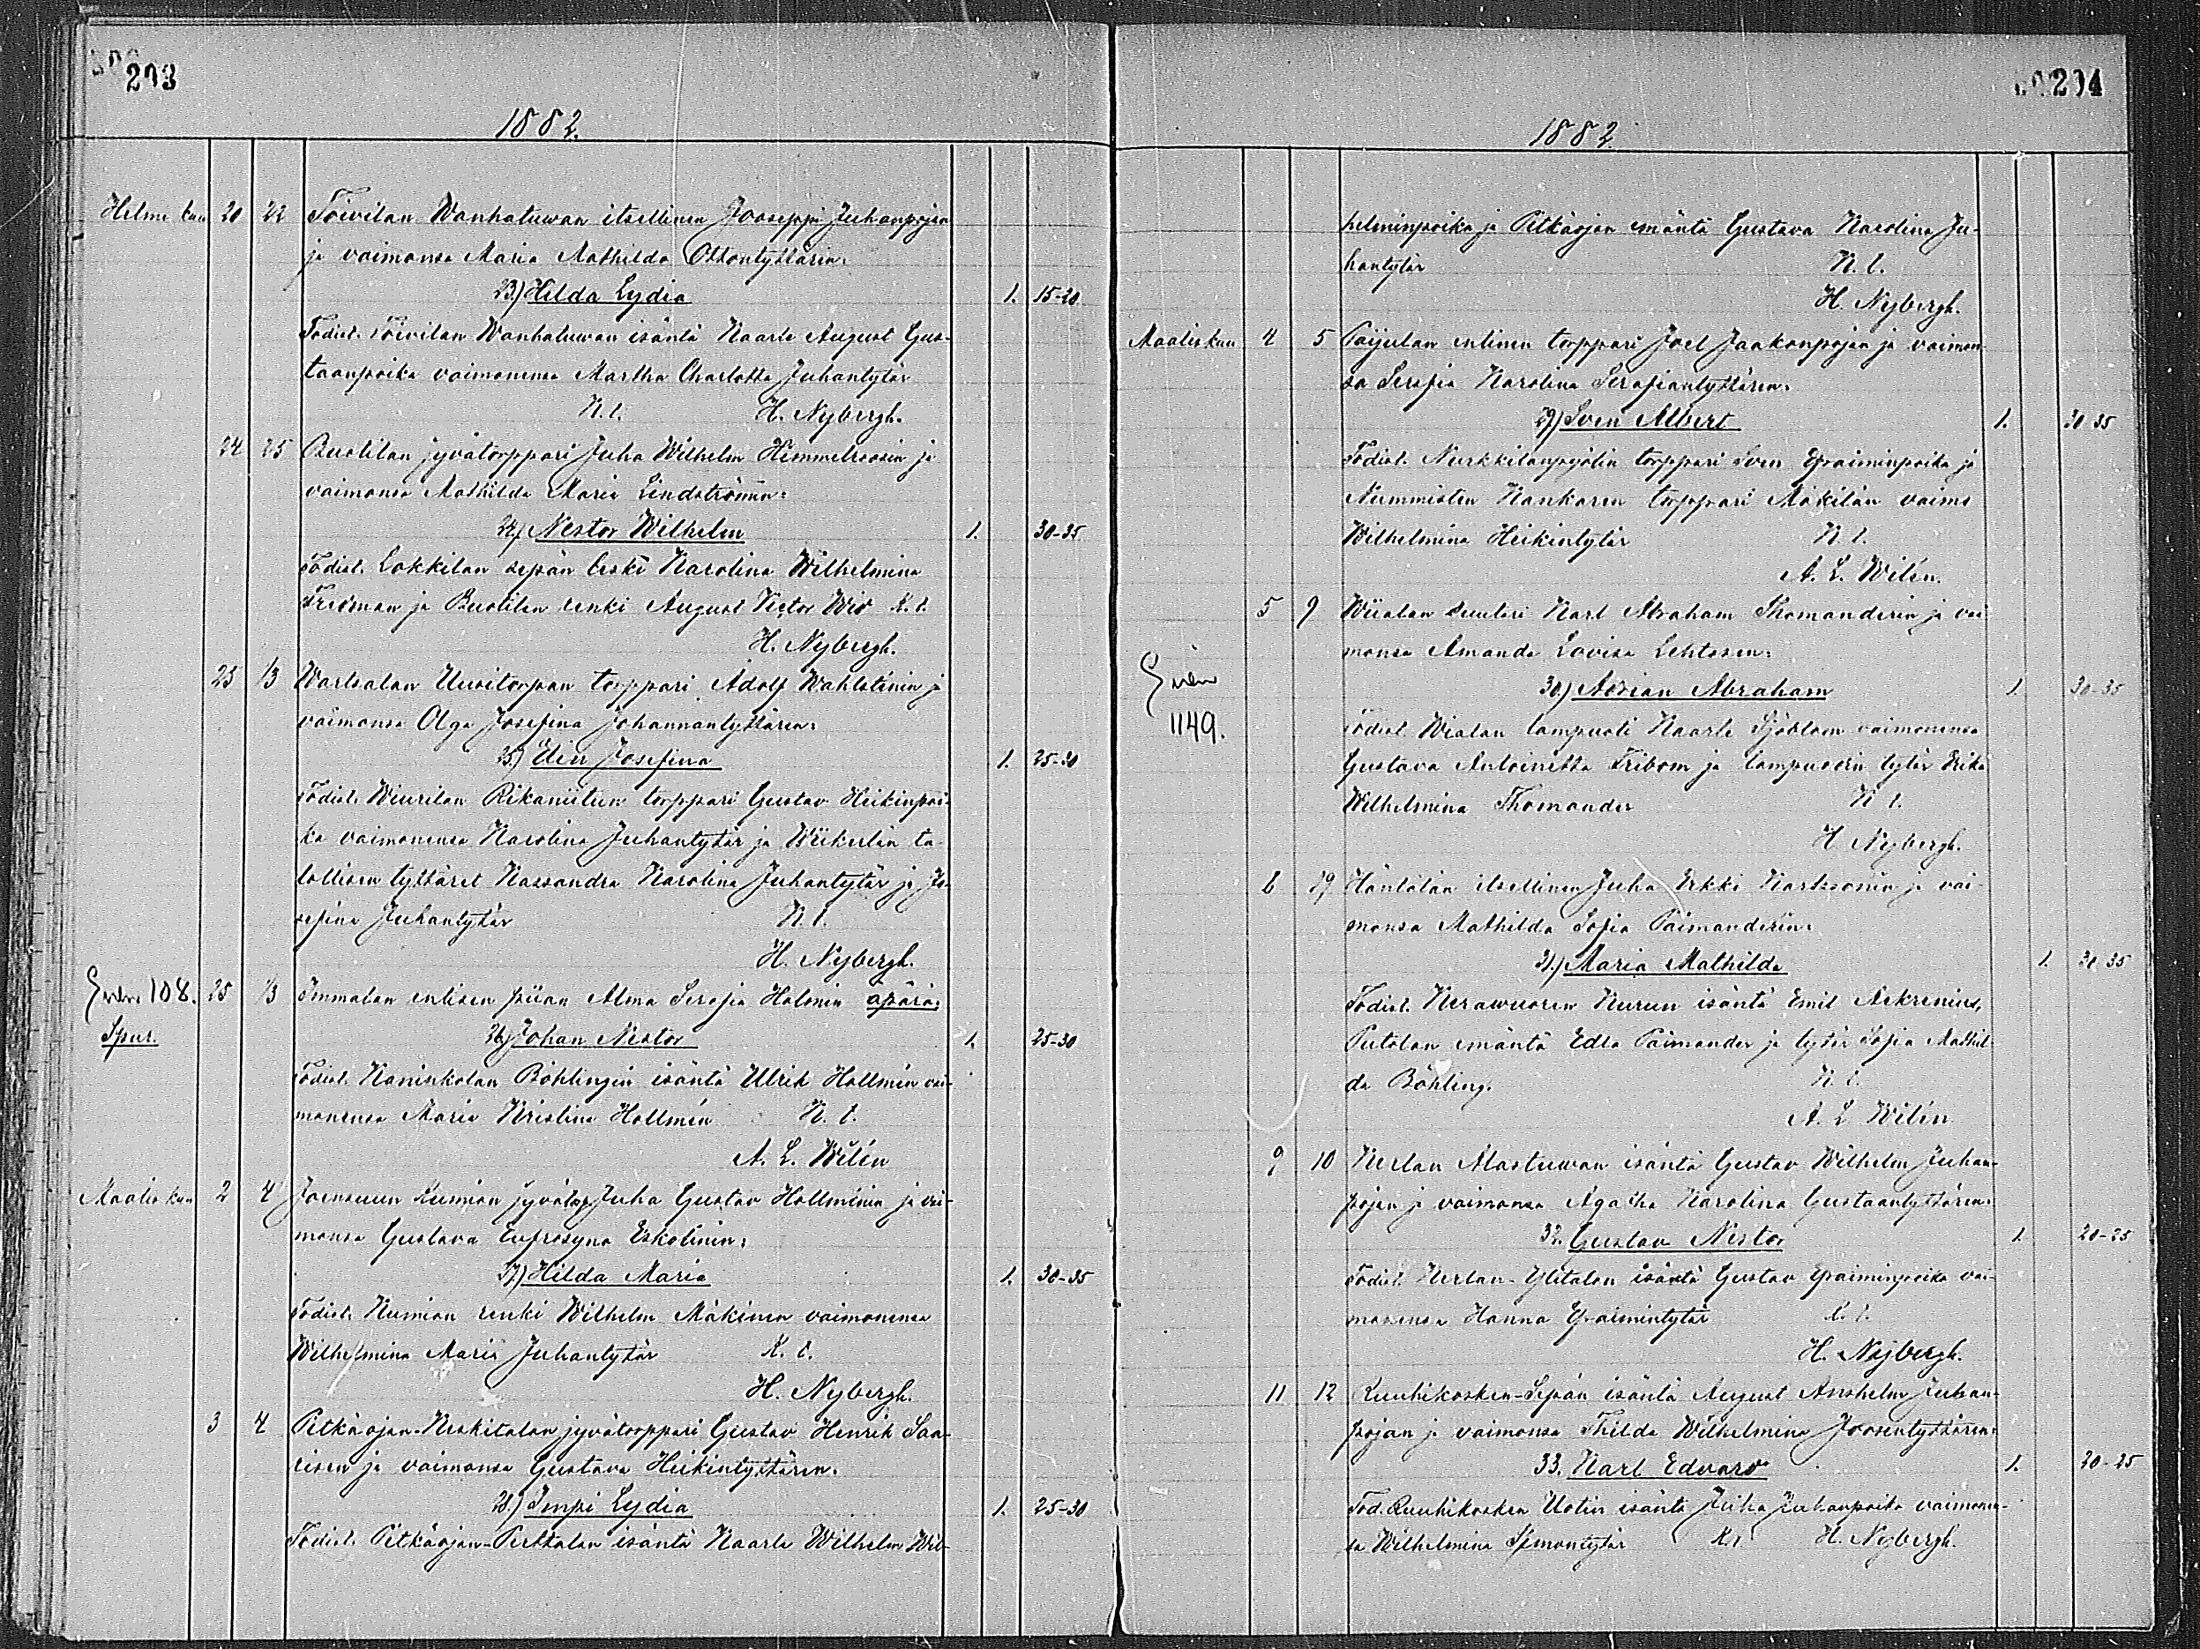 203
1882.
Helmi kuu 20 22 Toivilan Wanhatuwan itsellinen Jooseppi Juhanpojan
ja vaimonsa Maria Mathilda Ottontyttären:
23.) Hilda Lydia 1. 15-20
Todist. Toivilan Wanhatuwan isäntä Kaarle August Gus-
taanpoika vaimonensa Martha Charlotta Juhantytär
K. t. H. Nybergh.
24 25 Buotilan jyvätorppari Juha Wilhelm Himmelroosin ja
vaimonsa Mathilda Maria Lindströmin:
24.) Nestor Wilhelm 1. 30-35
Todist. Lokkilan sepän leski Karolina Wilhelmina
Friman ja Buotilan renki August Victor Wio K. t.
H. Nybergh.
25 1/3 Wartsalan Uusitorpan torppari Adolf Wahlsténin ja
vaimonsa Olga Josefina Johannantyttären:
25.) Elin Josefina 1. 25-30
Todist. Wiurilan Rikaniitun torppari Gustav Heikinpoi-
ka vaimonensa Karolina Juhantytär ja Wiikulan ta-
lollisen tyttäret Kassandra Karolina Juhantytär ja Jo-
sefina Juhantytär K. t.
H. Nybergh.
108. 25 1/3 Immalan entisen piian Alma Serafia Halonin äpärä:
Spur. 26.) Johan Nestor 1. 25-30
Todist. Kaninkolan Böhlingin isäntä Ulrik Hollmén vai-
monensa Maria Kristina Hollmén K. t.
A. L. Wilén
Maalis kuu 2 4 Joensuun Kumion jyvätorp. Juha Gustav Hollménin ja vai-
monsa Gustava Eufrosyna Eskolinin:
27.) Hilda Maria 1. 30-35
Todist. Kumion renki Wilhelm Mäkinen vaimonensa
Wilhelmina Maria Juhantytär K. t.
H. Nybergh.
3 4 Pitkäojan-Keskitalon jyvätorppari Gustav Henrik Saa-
risen ja vaimonsa Gustava Heikintyttären:
28.) Impi Lydia 1. 25-30
Todist. Pitkäojan-Perttalan isäntä Kaarle Wilhelm Wil-
204
1882
helminpoika ja Pitkäojan emäntä Gustava Karolina Ju-
hantytär K. t.
H. Nybergh.
Maaliskuu 4 5 Päijulan entinen torppari Joel Jaakonpojan ja vaimon-
sa Serafia Karolina Serafiantyttären:
29.) Sven Albert 1. 30-35
Todist. Nurkkilanpyölin torppari Sven Efraiminpoika ja
Nummisten Kankaren torppari Mäkilän vaimo
Wilhelmina Heikintytär K. t.
A. L. Wilén.
5 9 Wiialan suutari Karl Abraham Thomanderin ja vai-
monsa Amanda Lovisa Lehtosen:
30.) Adrian Abraham 1. 30-35
1149. Todist. Wialan lampuoti Kaarle Sjöblom vaimonensa
Gustava Antoinetta Fribom ja lampuodin tytär Erika
Wilhelmina Thomander K. t.
H. Nybergh.
6 19 Häntälän itsellinen Juha Erkki Karlssonin ja vai-
monsa Mathilda Sofia Paimanderin:
31.) Maria Mathilda 1. 30 35
Todist. Kerawuoren Kurun isäntä Emil Aekrenius,
Putolan emäntä Edla Paimander ja tytär Sofia Mathil-
da Böhling. K. t.
A. L. Wilén
9 10 Kerlan Alastuwan isäntä Gustav Wilhelm Juhan-
pojan ja vaimonsa Agatha Karolina Gustaantyttären:
32. Gustav Nestor 1. 20-25
Todist. Kerlan-Ylitalon isäntä Gustav Efraiminpoika vai-
monensa Hanna Efraimintytär K. t.
H. Nybergh.
11 12 Kuuhikosken-Sepän isäntä August Anshelm Juhan-
pojan ja vaimonsa Thilda Wilhelmina Joosentyttären:
33. Karl Edvard 1. 20-25
Tod. Kuuhikosken Uotin isäntä Juha Juhanpoika vaimonen-
sa Wilhelmina Simontytär K. t. H. Nybergh.